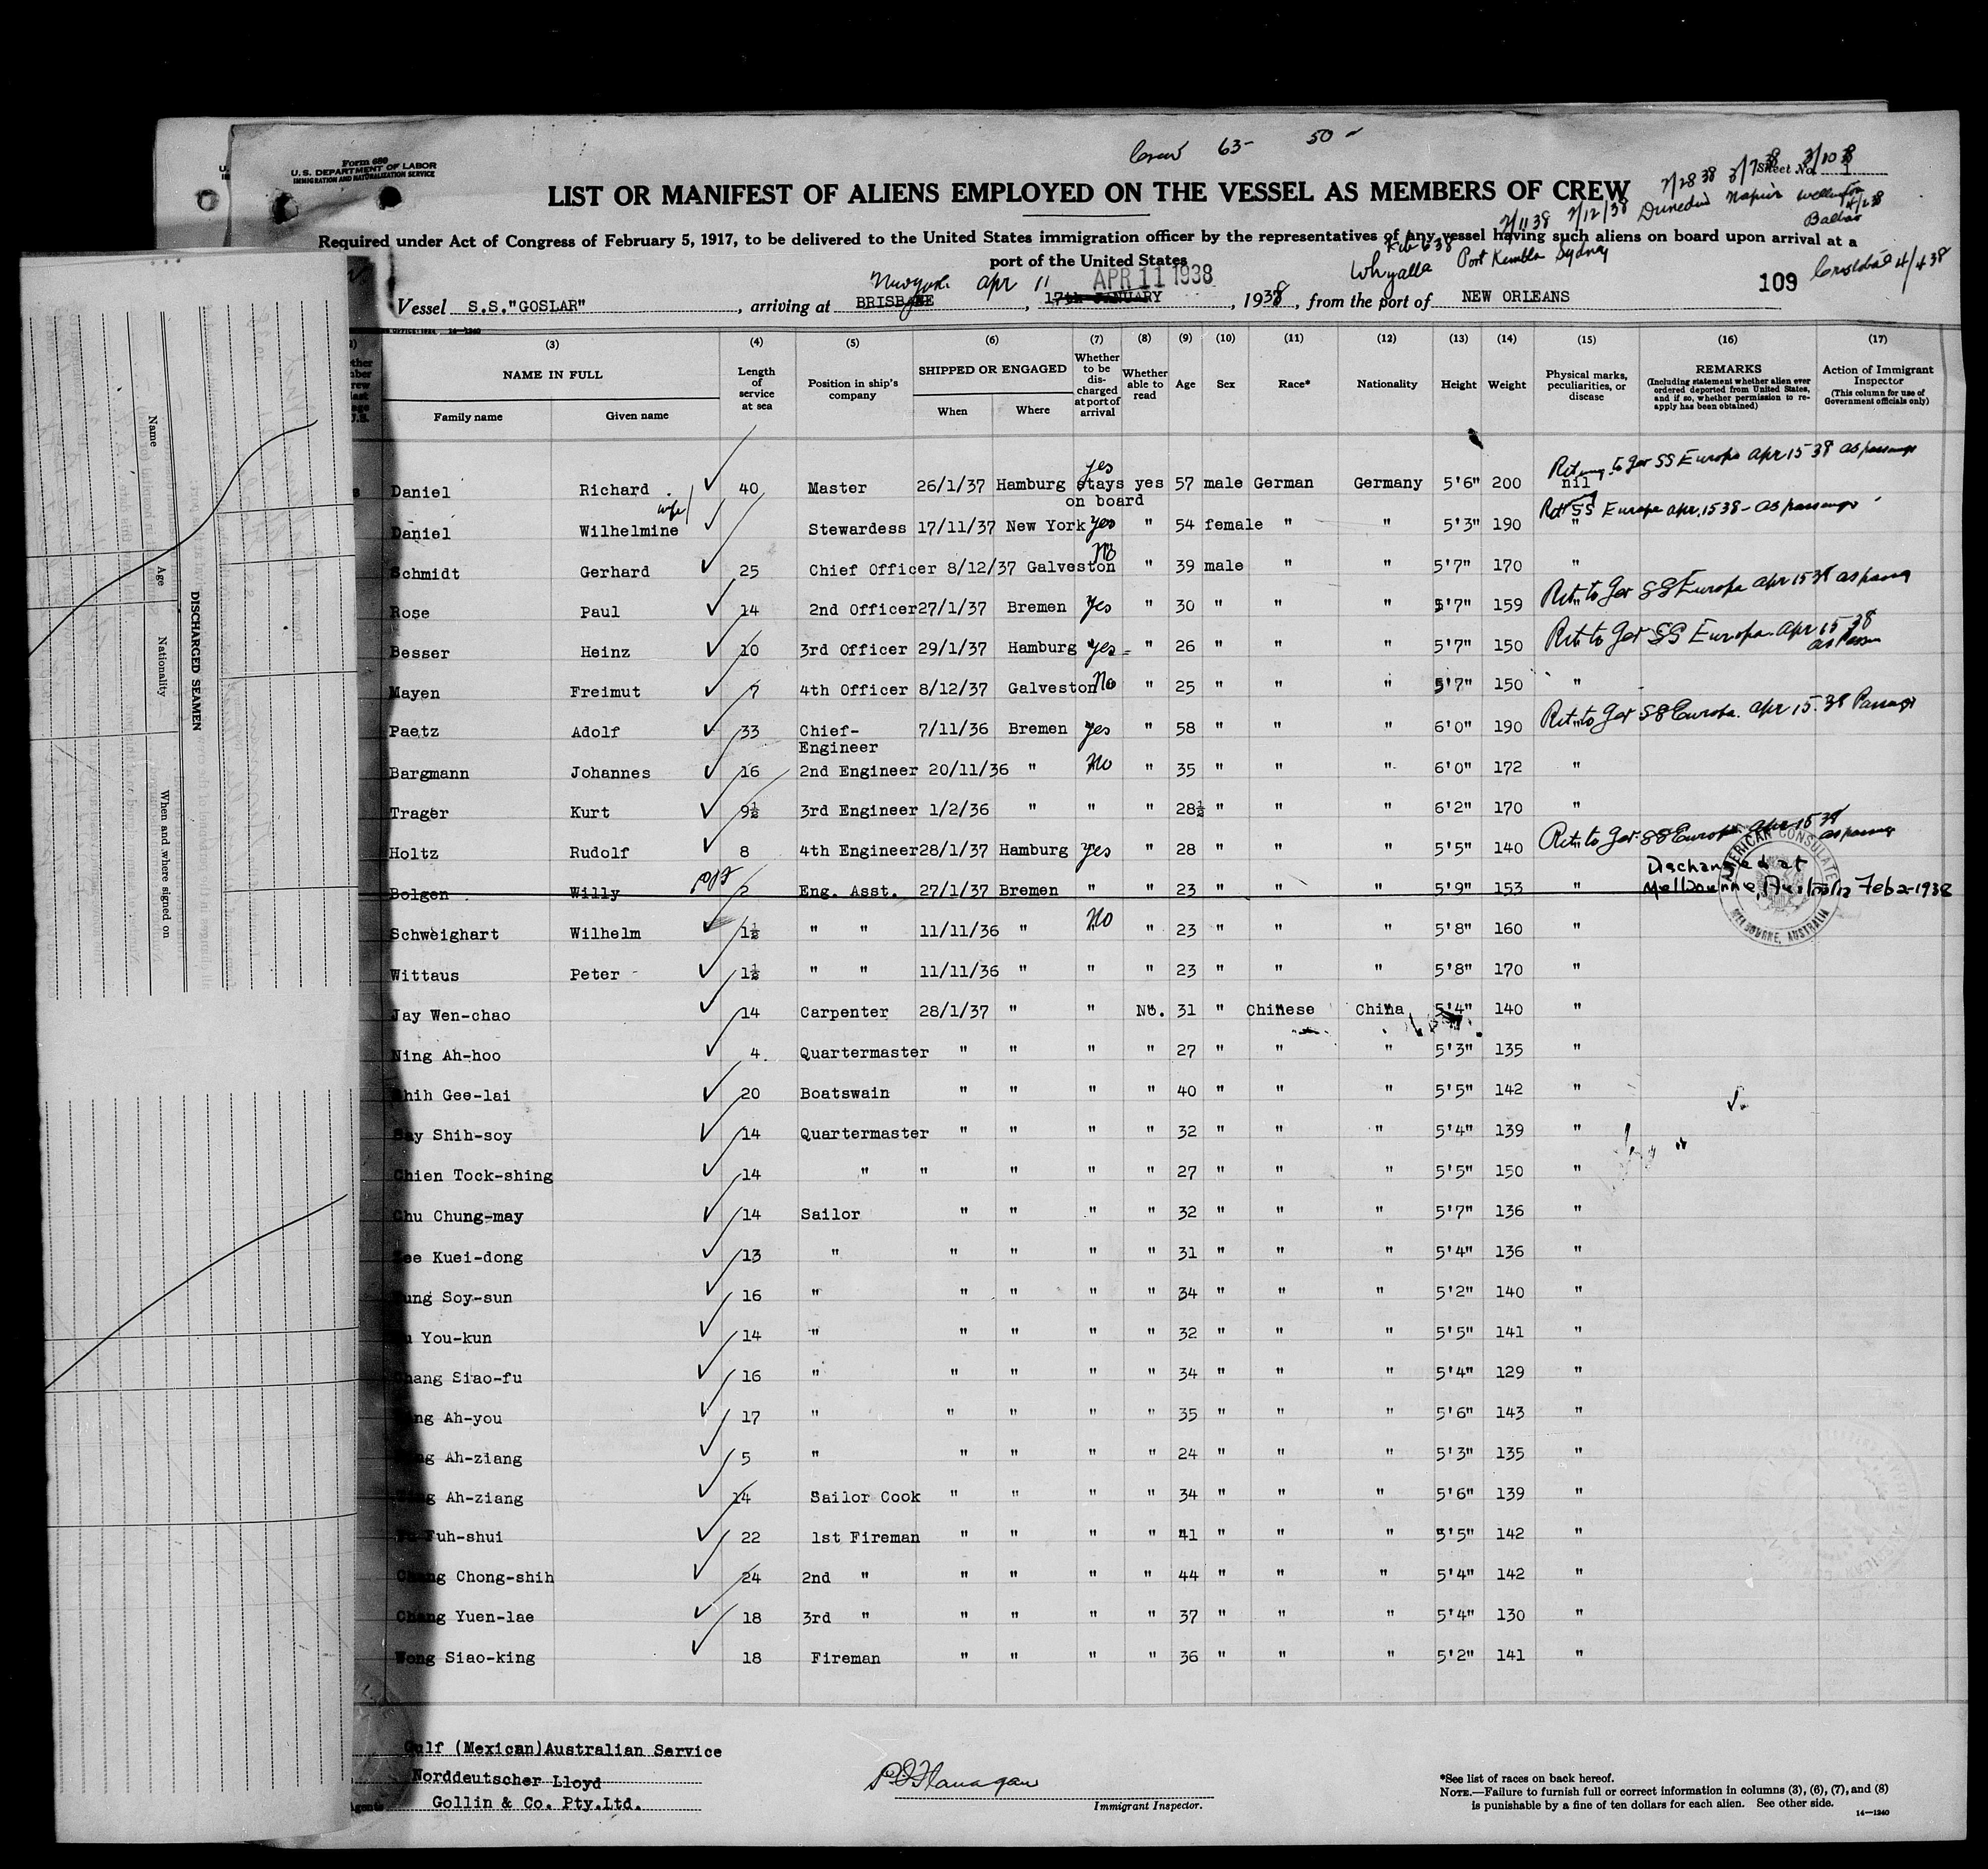 Crew 63- 50-
Form 680
U. S. DEPARTMENT OF LABOR
IMMIGRATION AND NATURALIZATION SERVICE
Sheet No. 1
2/28 38 3/7 38 3/10 38
LIST OR MANIFEST OF ALIENS EMPLOYED ON THE VESSEL AS MEMBERS OF CREW
Dunedin Napier Wellington
Balboa
2/11 38 2/12/38
Required under Act of Congress of February 5, 1917, to be delivered to the United States immigration officer by the representatives of any vessel having such aliens on board upon arrival at a
port of the United States
Whyalla Port Kembla Sydney
Cristobal 4/4 38
New York Apr 11 APR 11 1938
109
Vessel S.S."GOSLAR", arriving at BRISBANE, 17th JANUARY, 1938, from the port of NEW ORLEANS
(3) (4) (5) (6) (7) (8) (9) (10) (11) (12) (13) (14) (15) (16) (17)
NAME IN FULL
Family name Given name
Length of service at sea
Position in ship's company
SHIPPED OR ENGAGED
When Where
Whether to be discharged at port of arrival
Whether able to read
Age Sex Race* Nationality Height Weight
Physical marks, peculiarities, or disease
REMARKS
(Including statement whether alien ever ordered deported from United States, and if so, whether permission to reapply has been obtained)
Action of Immigrant Inspector
(This column for use of Government officials only)
Daniel Richard 40 Master 26/1/37 Hamburg yes stays on board yes 57 male German Germany 5'6" 200 nil Ret to Ger SS Europa Apr 15 38 as passenger
Daniel Wilhelmine wife Stewardess 17/11/37 New York yes " 54 female " " 5'3" 190 " SS Europa Apr. 15 38 - as passenger
Schmidt Gerhard 25 Chief Officer 8/12/37 Galveston No " 39 male " " 5'7" 170 "
Rose Paul 14 2nd Officer 27/1/37 Bremen yes " 30 " " " 5'7" 159 " Ret to Ger SS Europa Apr 15 38 as pass
Besser Heinz 10 3rd Officer 29/1/37 Hamburg yes " 26 " " " 5'7" 150 " Ret to Ger SS Europa Apr 15 38 as Passen
Mayen Freimut 7 4th Officer 8/12/37 Galveston No " 25 " " " 5'7" 150 "
Paetz Adolf 33 Chief-Engineer 7/11/36 Bremen yes " 58 " " " 6'0" 190 " Ret to Ger SS Europa Apr 15 38 Passenger
Bargmann Johannes 16 2nd Engineer 20/11/36 " No " 35 " " " 6'0" 172 "
Trager Kurt 9½ 3rd Engineer 1/2/36 " " " 28½ " " " 6'2" 170 "
Holtz Rudolf 8 4th Engineer 28/1/37 Hamburg yes " 28 " " " 5'5" 140 " Ret to Ger SS Europa Apr 15 38 as passng
Bolgen Willy off 2 Eng. Asst. 27/1/37 Bremen " " 23 " " " 5'9" 153 " Dschanged at Melbourne, Australia Feb 2-1938
AMERICAN CONSULATE
MELBOURNE, AUSTRALIA
Schweighart Wilhelm 1½ " " 11/11/36 " No " 23 " " " 5'8" 160 "
Wittaus Peter 1½ " " 11/11/36 " " " 23 " " " 5'8" 170 "
Jay Wen-chao 14 Carpenter 28/1/37 " " No. 31 " Chinese China 5'4" 140 "
Ning Ah-hoo 4 Quartermaster " " " " 27 " " " 5'3" 135 "
Shih Gee-lai 20 Boatswain " " " " 40 " " " 5'5" 142 "
Say Shih-soy 14 Quartermaster " " " " 32 " " " 5'4" 139 "
Chien Tock-shing 14 " " " " " 27 " " " 5'5" 150 "
Chu Chung-may 14 Sailor " " " " 32 " " " 5'7" 136 "
Kuei-dong 13 " " " " " 31 " " " 5'4" 136 "
Soy-sun 16 " " " " " 34 " " " 5'2" 140 "
You-kun 14 " " " " " 32 " " " 5'5" 141 "
Chang Siao-fu 16 " " " " " 34 " " " 5'4" 129 "
Ah-you 17 " " " " " 35 " " " 5'6" 143 "
Ah-ziang 5 " " " " " 24 " " " 5'3" 135 "
Ah-ziang 14 Sailor Cook " " " " 34 " " " 5'6" 139 "
Fuh-shui 22 1st Fireman " " " " 41 " " " 5'5" 142 "
Chang Chong-shih 24 2nd " " " " " 44 " " " 5'4" 142 "
Chang Yuen-lae 18 3rd " " " " " 37 " " " 5'4" 130 "
Wong Siao-king 18 Fireman " " " " 36 " " " 5'2" 141 "
Gulf (Mexican)Australian Service
Norddeutscher Lloyd
Gollin & Co. Pty.Ltd.
Agents
P. J. Flanagan
Immigrant Inspector.
*See list of races on back hereof.
NOTE.—Failure to furnish full or correct information in columns (3), (6), (7), and (8)
is punishable by a fine of ten dollars for each alien. See other side.
14—1240
DISCHARGED SEAMEN
Name Age Nationality When and where signed on